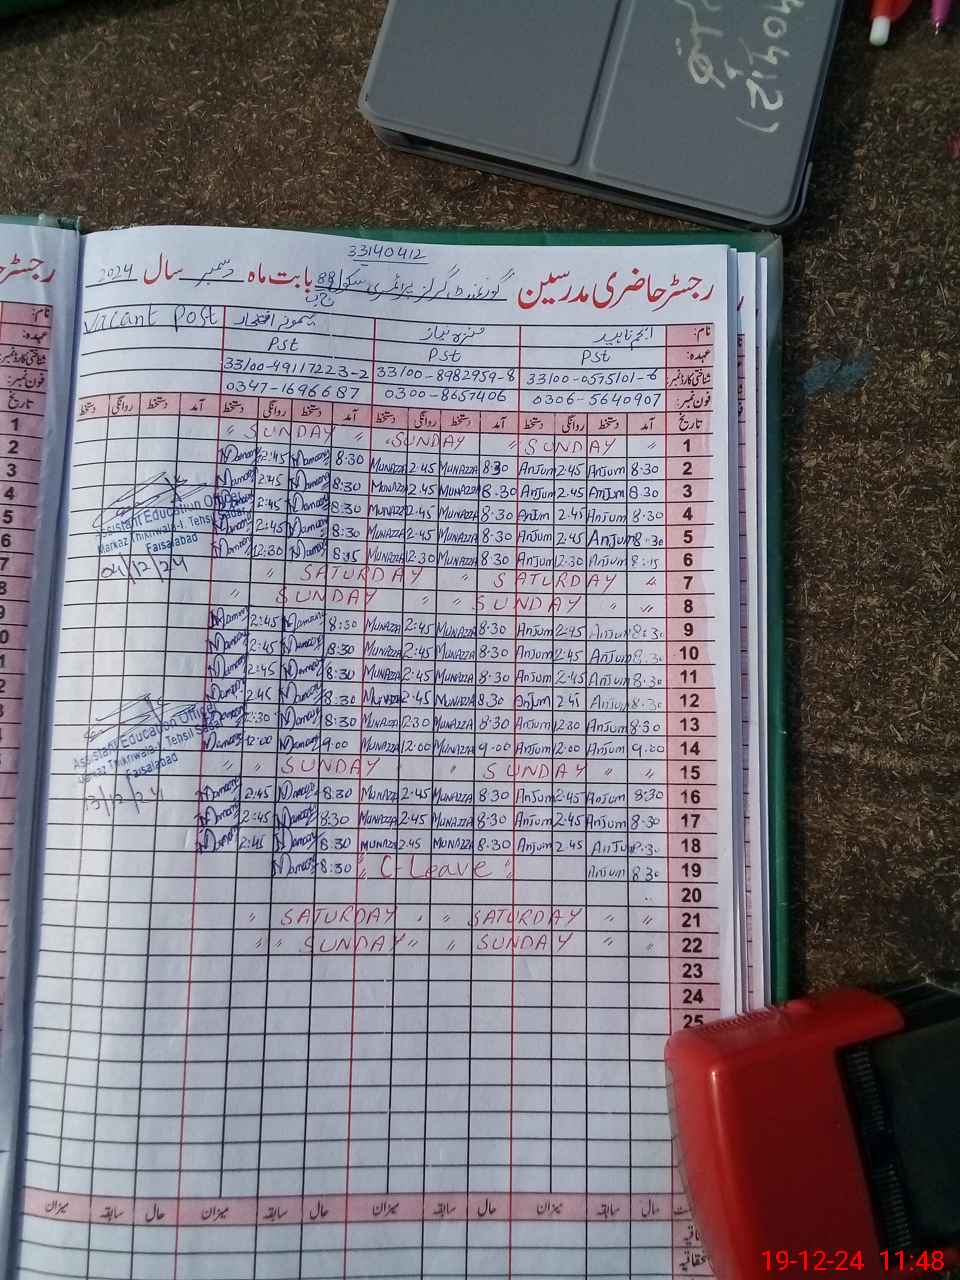 40412)
33140412
رجسٹر حاضری مدرسین گورنمنٹ گرلز پرائمری سکول 88 ج ب بابت ماہ دسمبر سال 2024
نام: انجم ناہید منزہ نیاز میمونہ افتخار Vacant Post
عہدہ: Pst Pst Pst
شناختی کارڈ نمبر: 33100-0575101-6 33100-8982959-8 33100-4911722 3-2
فون نمبر: 0306-5640907 0300-8657406 0347-1696687
تاریخ آمد دستخط روانگی دستخط آمد دستخط روانگی دستخط آمد دستخط روانگی دستخط آمد دستخط روانگی دستخط
1 " SUNDAY " SUNDAY " " SUNDAY "
2 8:30 Anjum 2.45 Anjum 8:30 MUNAZZA 2:45 MUNAZZA 8:30 2:45
3 8.30 Anjum 2.45 Anjum 8.30 MUNAZZA 2.45 MUNAZZA 8:30 2:45
4 8:30 Anjum 2.45 Anjum 8.30 MUNAZZA 2.45 MUNAZZA 8:30 2:45
5 8:30 Anjum 2.45 Anjum 8:30 MUNAZZA 2.45 MUNAZZA 8:30 2:45
6 8:15 Anjum 12.30 Anjum 8:30 MUNAZZA 12.30 MUNAZZA 8:15 12:30
7 " SATURDAY " SATURDAY "
8 " " SUNDAY " " SUNDAY "
9 8:30 Anjum 2:45 Anjum 8:30 MUNAZZA 2:45 MUNAZZA 8:30 2:45
10 8.30 Anjum 2:45 Anjum 8:30 MUNAZZA 2:45 MUNAZZA 8:30 2:45
11 8.30 Anjum 2.45 Anjum 8:30 MUNAZZA 2:45 MUNAZZA 8:30 2:45
12 8.30 Anjum 2.45 Anjum 8.30 MUNAZZA 2.45 MUNAZZA 8:30 2.45
13 8.30 Anjum 12:30 Anjum 8:30 MUNAZZA 12:30 MUNAZZA 8:30 12:30
14 9.00 Anjum 12:00 Anjum 9.00 MUNAZZA 12:00 MUNAZZA 9.00 12:00
15 " " SUNDAY " " SUNDAY " "
16 8:30 Anjum 2:45 Anjum 8.30 MUNAZZA 2:45 MUNAZZA 8:30 2:45
17 8:30 Anjum 2:45 Anjum 8:30 MUNAZZA 2:45 MUNAZZA 8:30 2:45
18 8:30 Anjum 2.45 Anjum 8:30 MUNAZZA 2.45 MUNAZZA 8:30 2:45
19 8 30 Anjum " C-Leave " 8:30
20
21 " " SATURDAY " " SATURDAY "
22 " " SUNDAY " " SUNDAY " "
23
24
25
Assistant Education Officer
Markaz Thikriwala-I, Tehsil Sadar
Faisalabad
04/12/24
Assistant Education Officer
Markaz Thikriwala-I, Tehsil Sadar
Faisalabad
13/12/24
حال سابقہ میزان حال سابقہ میزان حال سابقہ میزان حال سابقہ میزان
رجسٹر
نام:
عہدہ:
شناختی کارڈ نمبر:
فون نمبر:
تاریخ
1
2
3
4
5
6
7
8
9
19-12-24 11:48